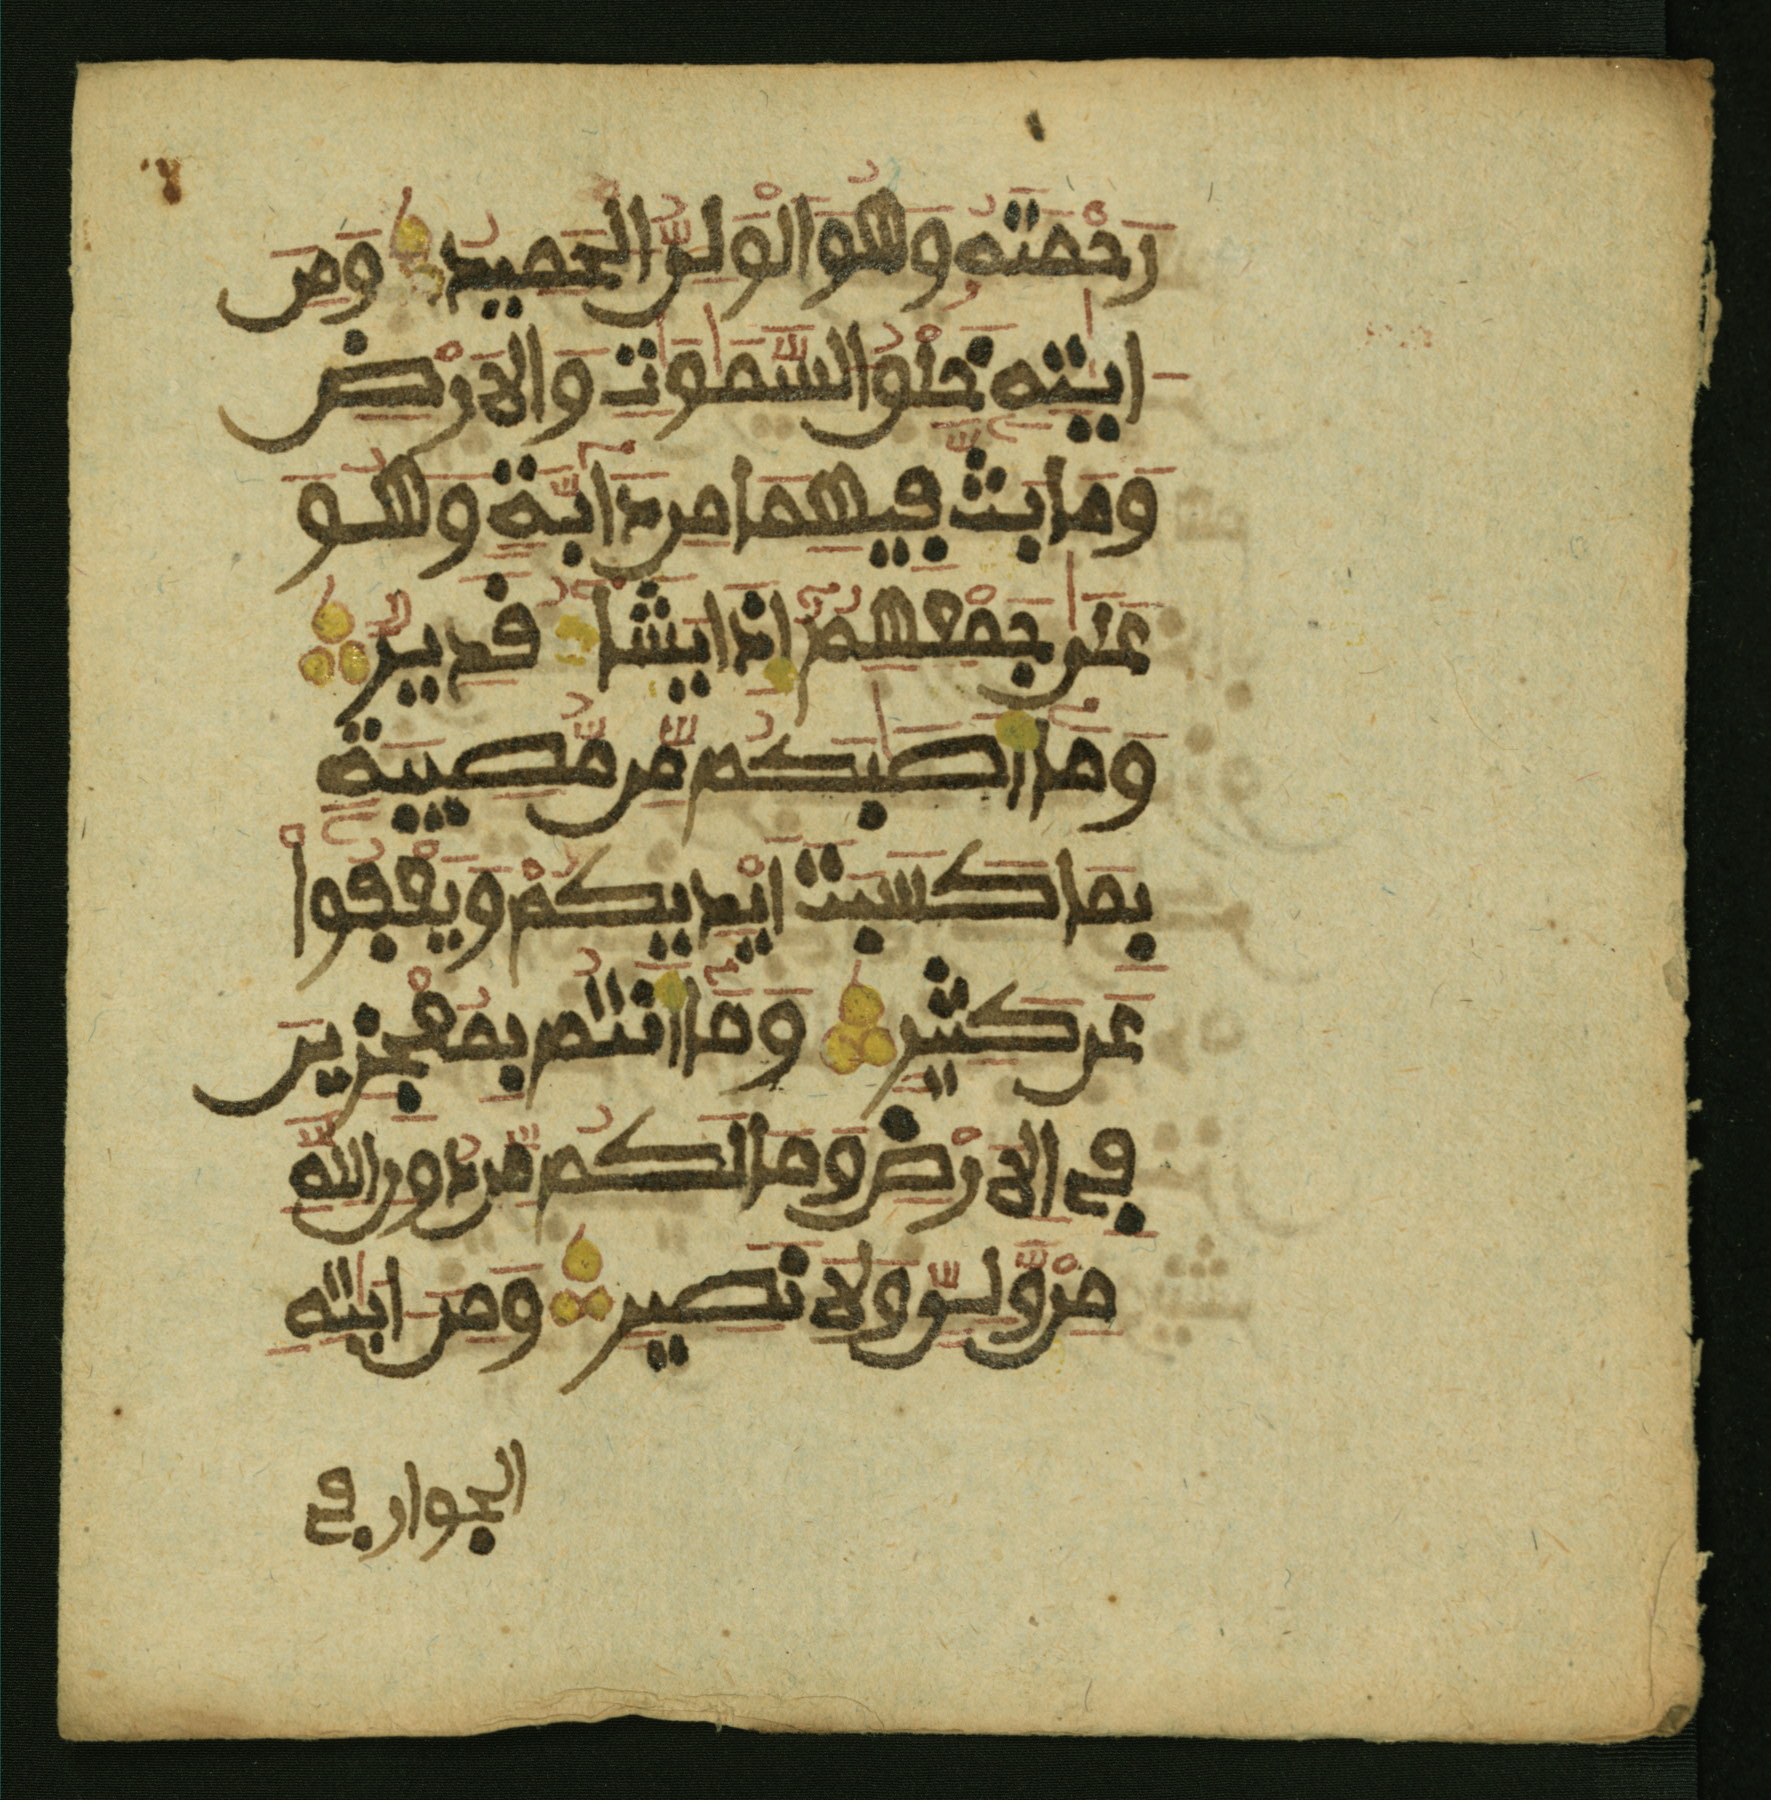 رَحْمَتَهُۥ وَهُوَ الْوَلِىُّ الْحَمِيدُ وَمِنَ
ـايَٰتِهِۦ خَلْقُ السَّمَٰوَٰتِ وَالَارْضِ
وَمَا بَثَّ فِيهِمَا مِن دَآبَّةٍ وَهُوَ
عَلَىٰ جَمْعِهِمُۥٓ إِذَا يَشَآءُ قَدِيرٌ
وَمَآ أَصَٰبَكُم مِّن مُّصِيبَةٍۢ
بِمَا كَسَبَتَ اَيْدِيكُمْ وَيَعْفُواْ
عَن كَثِيرٍ وَمَآ أَنتُم بِمُعْجِزِينَ
فِى الَارْضِ وَمَا لَكُم مِّن دُونِ اللَّهِ
مِنْ وَّلِىٍّ وَلَا نَصِيرٍ وَمِنَ ـايَٰتِهِ
الجوار في